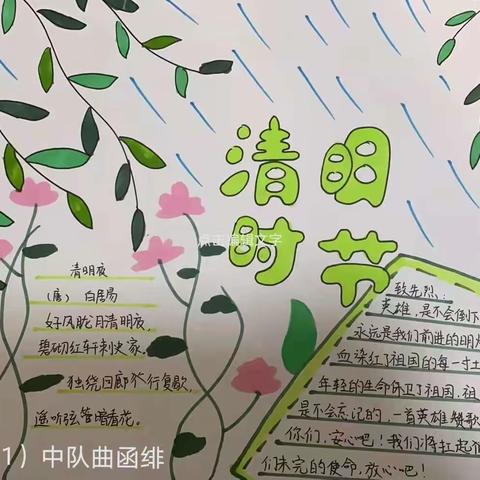 清明
时节
点击编辑文字
清明夜
(唐) 白居易
好风胧月清明夜,
碧砌红轩刺史家。
独绕回廊行复歇,
遥听弦管暗看花。
致先烈:
英雄,是不会倒下
永远是我们前进的明灯
血染红了祖国的每一寸土
年轻的生命保卫了祖国,祖
是不会忘记的,一首英雄赞歌
你们,安心吧!我们将扛起
们未完的使命,放心吧!
1)中队曲函绯